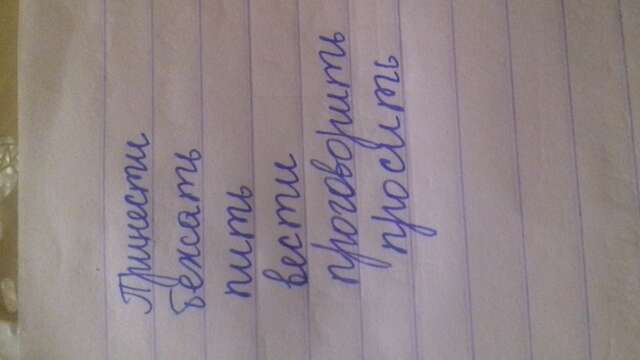 Принести
бежать
пить
вести
проговорить
просить